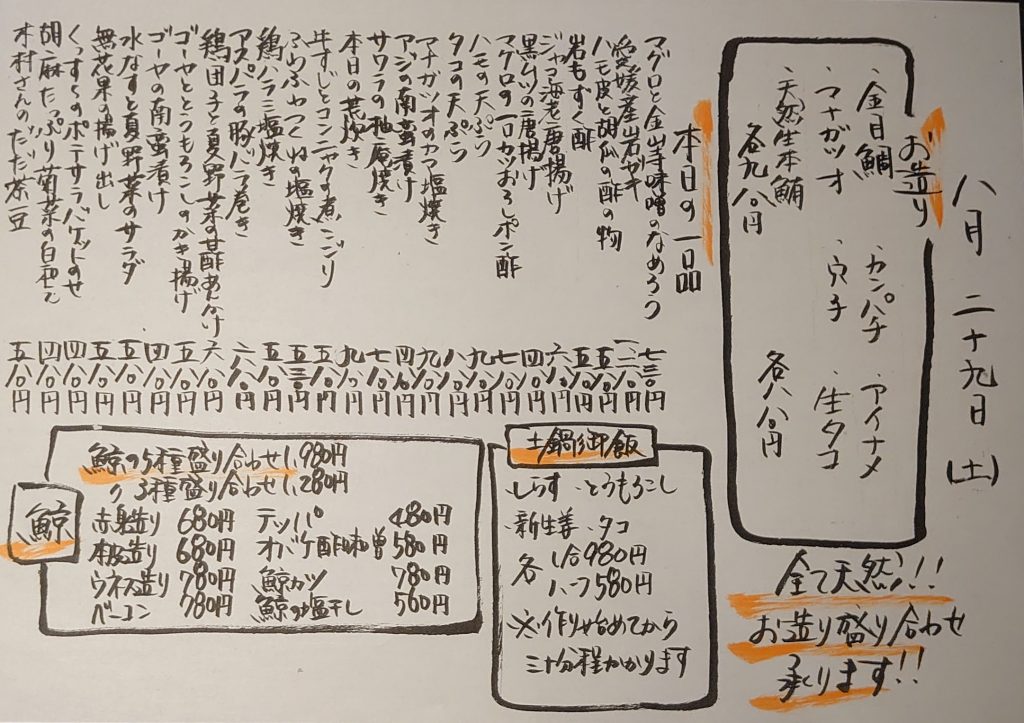 八月二十九日(土)
お造り
・金目鯛 ・カンパチ ・アイナメ
・マナガツオ ・穴子 ・生タコ
各八八〇円
・天然生本鮪
各九八〇円
全て天然!!
お造り盛り合わせ
承ります!!
本日の一品
マグロと金山寺味噌のなめろう 七三〇円
愛媛産岩ガキ
ハモ皮と胡瓜の酢の物 五八〇円
岩もずく酢 五八〇円
ジャコ海老唐揚げ 六八〇円
黒ムツの唐揚げ
マグロの一口カツおろしポン酢
ハモの天ぷら 九八〇円
タコの天ぷら 八八〇円
マナガツオのカマ塩焼き 九八〇円
アジの南蛮漬け 四八〇円
サワラの柚庵焼き 七八〇円
本日の荒炊き 九八〇円
牛すじとコンニャクの煮こごり 五八〇円
ふわふわつくねの塩焼き 五三〇円
鶏ハラミ塩焼き 五八〇円
アスパラの豚バラ巻き 六八〇円
鶏団子と夏野菜の甘酢あんかけ 六八〇円
ゴーヤととうもろこしのかき揚げ 五八〇円
ゴーヤの南蛮漬け 四八〇円
水なすと夏野菜のサラダ 五八〇円
無花果の揚げ出し 五八〇円
くっすーのポテサラバゲットのせ 四八〇円
胡麻たっぷり菊菜の白和え 四八〇円
木村さんのだだ茶豆 五八〇円
土鍋御飯
しらす ・とうもろこし
新生姜 ・タコ
各 1合980円
ハーフ580円
※作り始めてから
三十分程かかります
鯨
鯨の5種盛り合わせ 1,980円
〃 3種盛り合わせ 1,280円
赤身造り 680円 テッパ 480円
本皮造り 680円 オバケ酢味噌 580円
ウネス造り 780円 鯨カツ 780円
ベーコン 780円 鯨の塩干し 500円